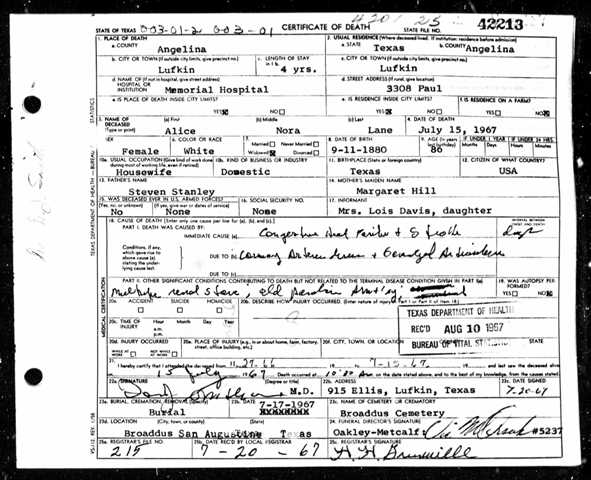 STATE OF TEXAS 003-01-2 003-01 CERTIFICATE OF DEATH 420 25 STATE FILE NO. 42213
1. PLACE OF DEATH
a. COUNTY Angelina
2. USUAL RESIDENCE (Where deceased lived. If institution: residence before admission)
a. STATE Texas b. COUNTY Angelina
b. CITY OR TOWN (If outside city limits, give precinct no.) Lufkin
c. LENGTH OF STAY in 1 b. 4 yrs.
c. CITY OR TOWN (If outside city limits, give precinct no.) Lufkin
d. NAME OF (If not in hospital, give street address) HOSPITAL OR INSTITUTION Memorial Hospital
d. STREET ADDRESS (If rural, give location) 3308 Paul
e. IS PLACE OF DEATH INSIDE CITY LIMITS? YES NO
e. IS RESIDENCE INSIDE CITY LIMITS? YES NO
f. IS RESIDENCE ON A FARM? YES NO
3. NAME OF DECEASED (Type or print) (a) First Alice (b) Middle Nora (c) Last Lane
4. DATE OF DEATH July 15, 1967
5. SEX Female
6. COLOR OR RACE White
7. Married Never Married Widowed Divorced
8. DATE OF BIRTH 9-11-1880
9. AGE (In years last birthday) 86
IF UNDER 1 YEAR Months Days
IF UNDER 24 HRS. Hours Min.
10a. USUAL OCCUPATION (Give kind of work done during most of working life, even if retired) Housewife
10b. KIND OF BUSINESS OR INDUSTRY Domestic
11. BIRTHPLACE (State or foreign country) Texas
12. CITIZEN OF WHAT COUNTRY? USA
13. FATHER'S NAME Steven Stanley
14. MOTHER'S MAIDEN NAME Margaret Hill
15. WAS DECEASED EVER IN U.S. ARMED FORCES? (Yes, no, or unknown) No (If yes, give war or dates of service) None
16. SOCIAL SECURITY NO. None
17. INFORMANT Mrs. Lois Davis, daughter
18. CAUSE OF DEATH (Enter only one cause per line for (a), (b), and (c).)
PART I. DEATH WAS CAUSED BY:
INTERVAL BETWEEN ONSET AND DEATH
IMMEDIATE CAUSE (a) days
Conditions, if any, which gave rise to above cause (a) stating the underlying cause last.
DUE TO (b)
DUE TO (c)
PART II. OTHER SIGNIFICANT CONDITIONS CONTRIBUTING TO DEATH BUT NOT RELATED TO THE TERMINAL DISEASE CONDITION GIVEN IN PART I(a)
19. WAS AUTOPSY PERFORMED? YES NO
20a. ACCIDENT SUICIDE HOMICIDE
20b. DESCRIBE HOW INJURY OCCURRED. (Enter nature of injury in Part I or Part II of item 18.)
TEXAS DEPARTMENT OF HEALTH
REC'D AUG 10 1967
BUREAU OF VITAL
20c. TIME OF INJURY Hour Month Day Year a.m. p.m.
20d. INJURY OCCURRED WHILE AT WORK NOT WHILE AT WORK
20e. PLACE OF INJURY (e.g., in or about home, farm, factory, street, office building, etc.)
20f. CITY, TOWN, OR LOCATION
21. I hereby certify that I attended the deceased from 11-27-66 7-15-67
22a. SIGNATURE (Degree or title) M.D.
22b. ADDRESS 915 Ellis, Lufkin, Texas
22c. DATE SIGNED 7-20-67
23a. BURIAL, CREMATION, REMOVAL (Specify) Burial
23b. DATE 7-17-1967
23c. NAME OF CEMETERY OR CREMATORY Broaddus Cemetery
23d. LOCATION (City, town, or county) (State) Broaddus San Augustine Texas
24. FUNERAL DIRECTOR'S SIGNATURE Oakley-Metcalf #5237
25a. REGISTRAR'S FILE NO. 215
25b. DATE REC'D BY LOCAL REGISTRAR 7-20-67
25c. REGISTRAR'S SIGNATURE
TEXAS DEPARTMENT OF HEALTH — BUREAU STATISTICS
MEDICAL CERTIFICATION
VS-112 REV. 1/58